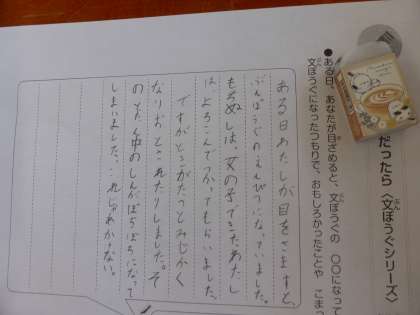 だったら〈文ぼうぐシリーズ〉
●ある日、あなたが目ざめると、文ぼうぐの 〇〇になって
文ぼうぐになったつもりで、おもしろかったことや こまっ
ある日あたしが目をさますと、
ぶんぼうぐのえんぴつになっていました。
もちぬしは、女の子でした。あたし
は、よろこんでつかってもらいました。
ですがところがたつとみじかく
なりおとされたりしました。そ
のとたん中のしんがぼろぼろになって
しまいました。これじゃあかけない。